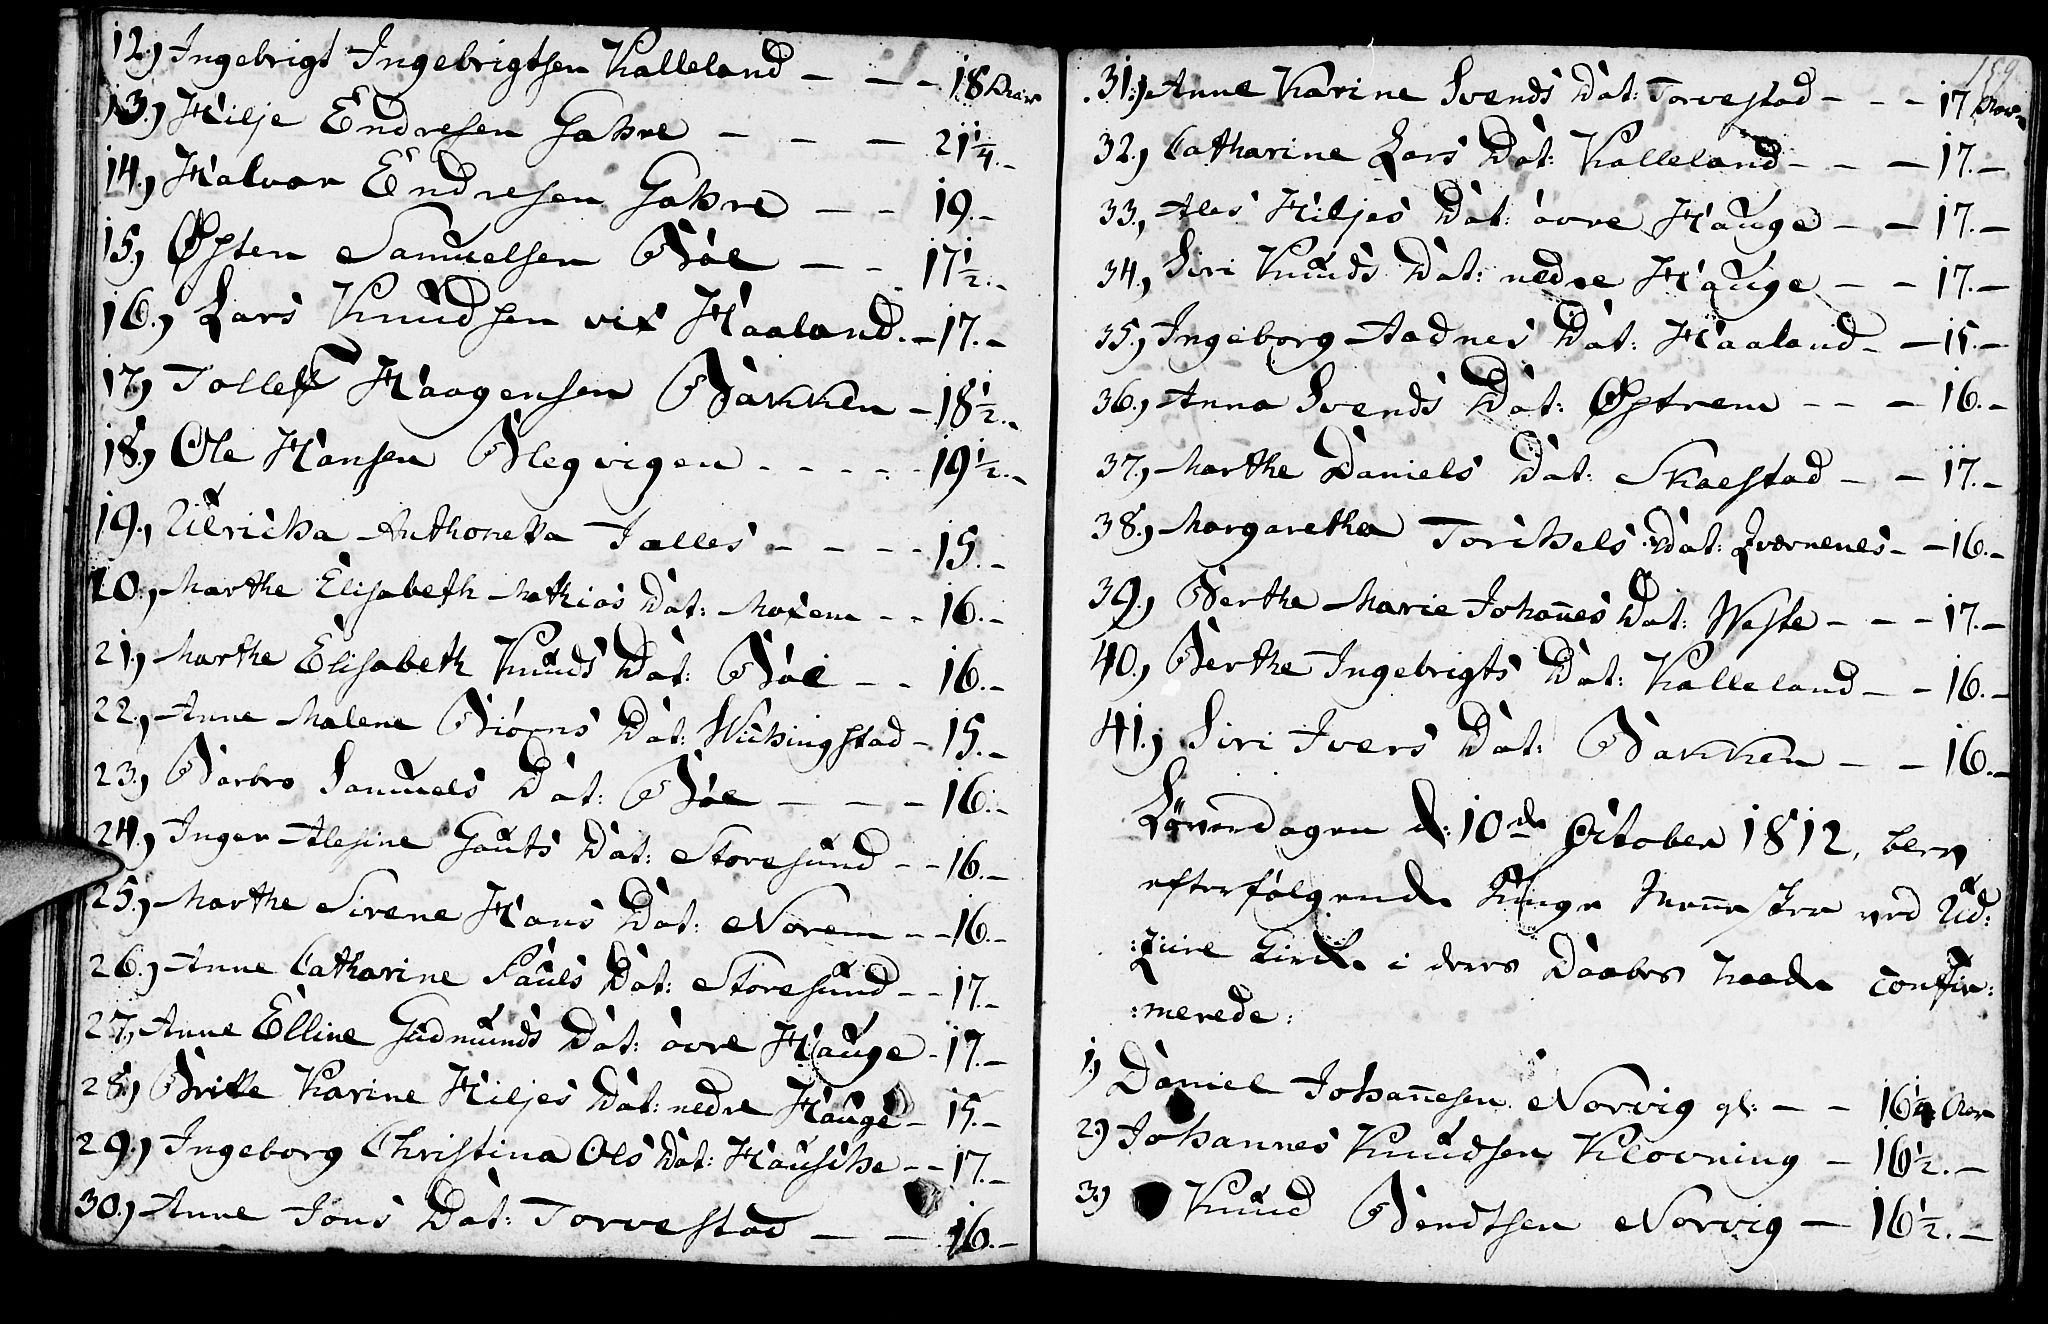 12.) Ingebrigt Ingebrigtsen Kalleland - - - 18 Aar
13.) Hilje Endresen Gahre - - - 21 1/4.-
14.) Halvor Endresen Gahre - - 19.-
15.) Østen Samuelsen Böe - - 17 1/2.-
16.) Lars Knudsen vix Haaland. - 17.-
17.) Tollef Haagensen Bakken - 18 1/2.-
18.) Ole Hansen Blegvigen - - - - - 19 1/2.-
19.) Ulricha Anthonetta Jalles - - - - 15.-
20.) Marthe Elisabeth Mathias Dat: Moxem - - 16.-
21.) Marthe Elisabeth Knuds Dat: Böe - - 16.-
22.) Anne Malene Biörns Dat: Wichingstad - 15.-
23.) Barbro Samuels Dat: Böe - - - 16.-
24.) Inger Alesine Gauts Dat: Storesund - - 16.-
25.) Marthe Sirene Hans Dat: Norem - - 16.-
26.) Anne Catharine Pauls Dat: Storesund - - 17.-
27.) Anne Elline Gudmunds Dat: övre Hauge - 17.-
28.) Britte Karine Hiljes Dat: nedre Hauge - 15.-
29.) Ingeborg Christina Ols Dat: Hausche - - 17.-
30.) Anne Jons Dat: Torvestad - - 16.-
159
31.) Anne Karine Svends Dat: Torvestad - - - 17 Aar
32.) Catharine Lars Dat: Kalleland - - - 17.-
33.) Ales Hiljes Dat: övre Hauge - - 17.-
34.) Siri Knuds Dat: nedre Hauge - - 17.-
35.) Ingeborg Aadnes Dat: Haaland - - 15.-
36.) Anna Svends Dat: Østrem - - - 16.-
37.) Marthe Daniels Dat: Skaestad - - 17.-
38.) Margaretha Torchels Dat: Qværnenes - - 16.-
39.) Berthe Marie Johañes Dat: Weste - - - 17.-
40.) Berthe Ingebrigts Dat: Kalleland - - 16.-
41.) Siri Ivers Dat: Bakken - - 16.-
Löverdagen d: 10de October 1812, blev
efterfølgende Unge Mennesker ved Ud:
:züire Kirke i deres Daabes Naade confir:
:merede:
1.) Daniel Johañesen Norvig gl: - - 16 1/4 Aar
2.) Johannes Knudsen Klovning - 16 1/2.-
3.) Knud Bendtsen Norvig - 16 1/2.-